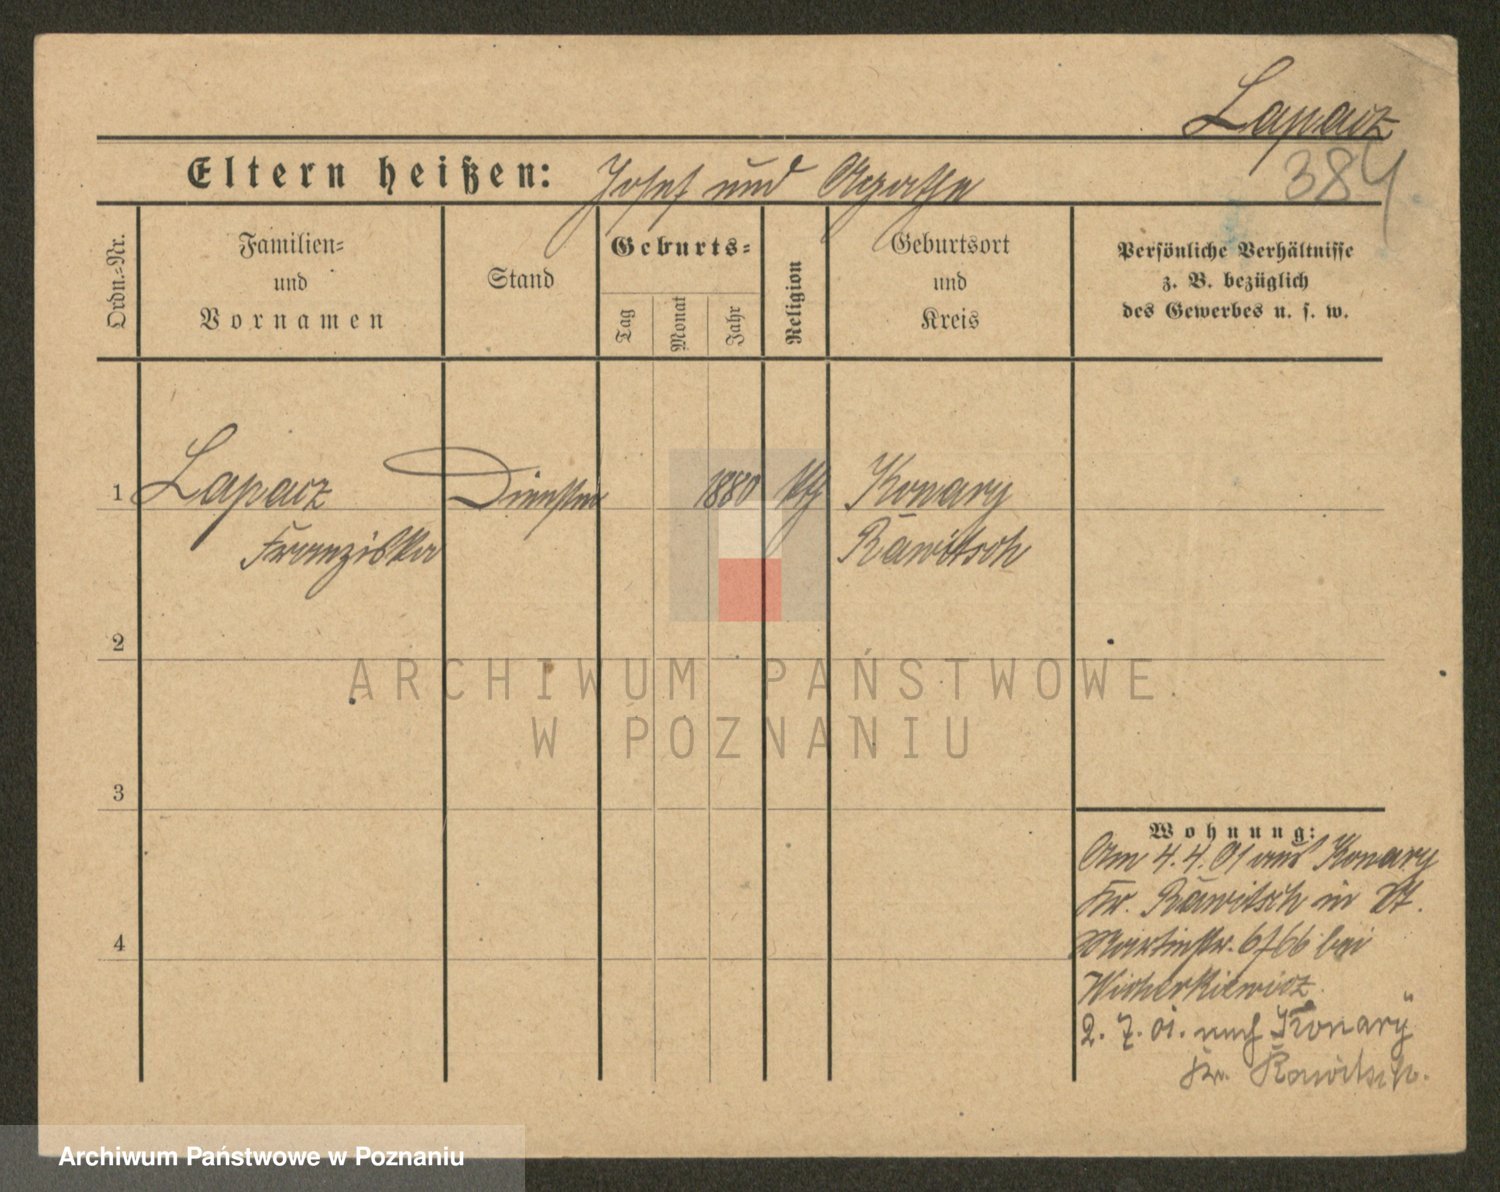 Lapacz
384
Eltern heißen: Josef und Agathe
Ordn.-Nr.
Familien-
und
Vornamen
Stand
Geburts-
Tag
Monat
Jahr
Religion
Geburtsort
und
Kreis
Persönliche Verhältnisse
z. B. bezüglich
des Gewerbes u. s. w.
1 Lapacz 1880 kth Konary
Franziska Rawitsch
2
3
4
Wohnung:
Am 4.4.01 aus Konary
Kr. Rawitsch in St.
Martinstr. bei
Wicherkiewicz.
2. 7. 01. nach Konary
Kr. Rawitsch.
ARCHIWUM PAŃSTWOWE
W POZNANIU
Archiwum Państwowe w Poznaniu